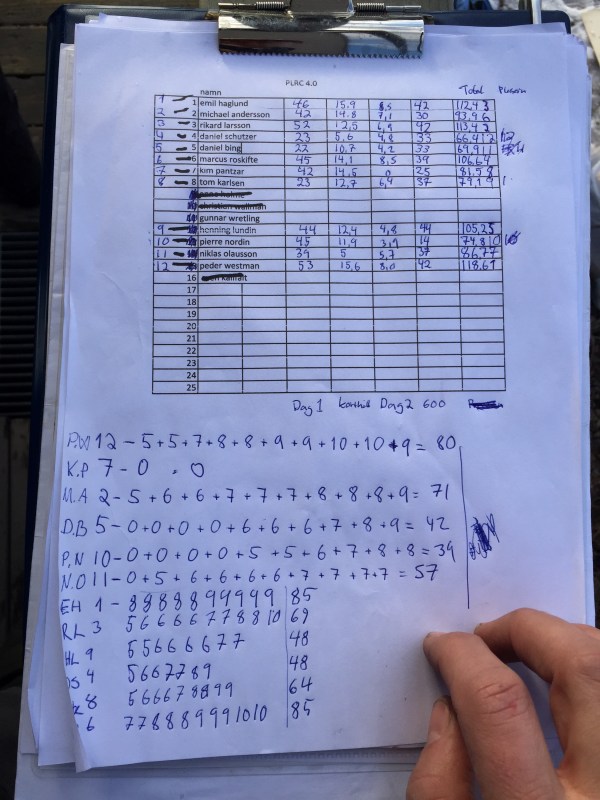 PLRC 4.0
namn Total
1 1 emil haglund 46 15.9 8,5 42 112,43
2 2 michael andersson 42 14.8 7,1 30 93,96
3 3 rikard larsson 52 12,5 6,9 42 113,42
4 4 daniel schutzer 23 5.6 4,8 33
5 5 daniel bing 22 10,7 4,2 33
6 6 marcus roskifte 45 14,1 8,5 39 106,64
7 7 kim pantzar 42 14,6 0 25 81,58
8 8 tom karlsen 23 12,7 6,4 37 79,19
gunnar wretling
9 henning lundin 44 12,4 4,8 44 105,25
10 pierre nordin 45 11,9 3,9 14 74,810
11 niklas olausson 39 5 5,7 37 86,77
12 peder westman 53 15,6 8,0 42 118,61
16
17
18
19
20
21
22
23
24
25
Dag 1 Dag 2 600
P.W 12 - 5+5+7+8+8+9+9+10+10+9 = 80
K.P 7 - 0 = 0
M.A 2 - 5+6+6+7+7+7+8+8+8+9 = 71
D.B 5 - 0+0+0+0+6+6+6+7+8+9 = 42
P.N 10 - 0+0+0+0+5+5+6+7+8+8 = 39
N.O 11 - 0+5+6+6+6+6+7+7+7+7 = 57
EH 1 - 8888899999 85
RL 3 56666778810 69
HL 9 55666677 48
DS 4 5667789 48
8 566678899 64
6 778889991010 85